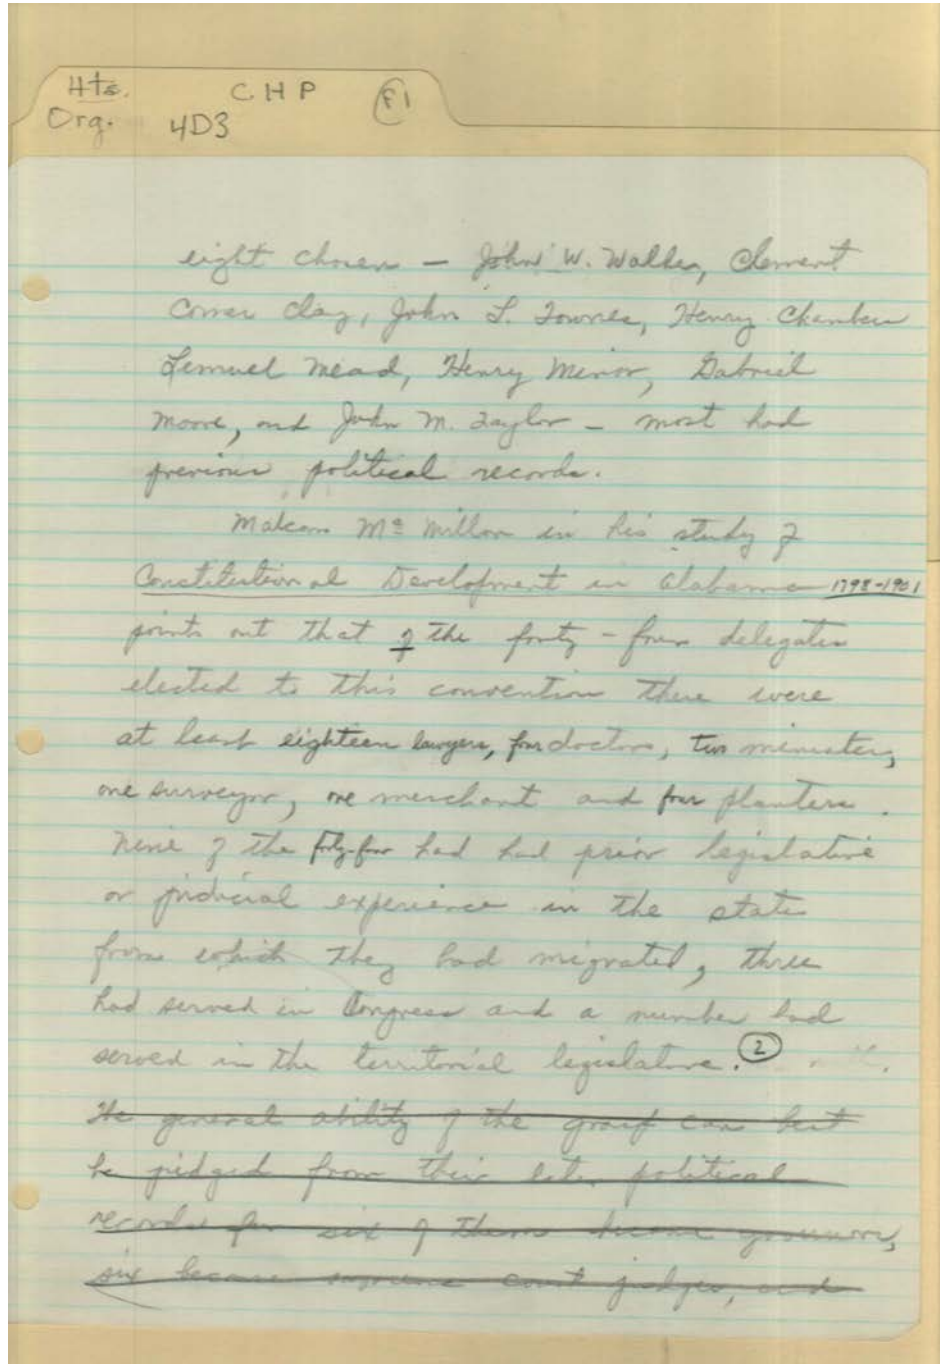 Hts. CHP F1
Org. 4D3
eight chosen – John W. Walker, Clement
Comer Clay, John L. Townes, Henry Chambers
Lemuel Mead, Henry Minor, Gabriel
Moore, and John M. Taylor – most had
previous political records.
Malcom McMillan in his study of
Constitutional Development in Alabama 1798-1901
points out that of the forty-four delegates
elected to this convention there were
at least eighteen lawyers, four doctors, two ministers,
one surveyor, one merchant and four planters.
Nine of the forty-four had had prior legislative
or judicial experience in the state
from which they had migrated, three
had served in Congress and a number had
served in the territorial legislature. 2
The general ability of the group can best
be judged from their later political
records for six of them became governors,
six became supreme court judges, and